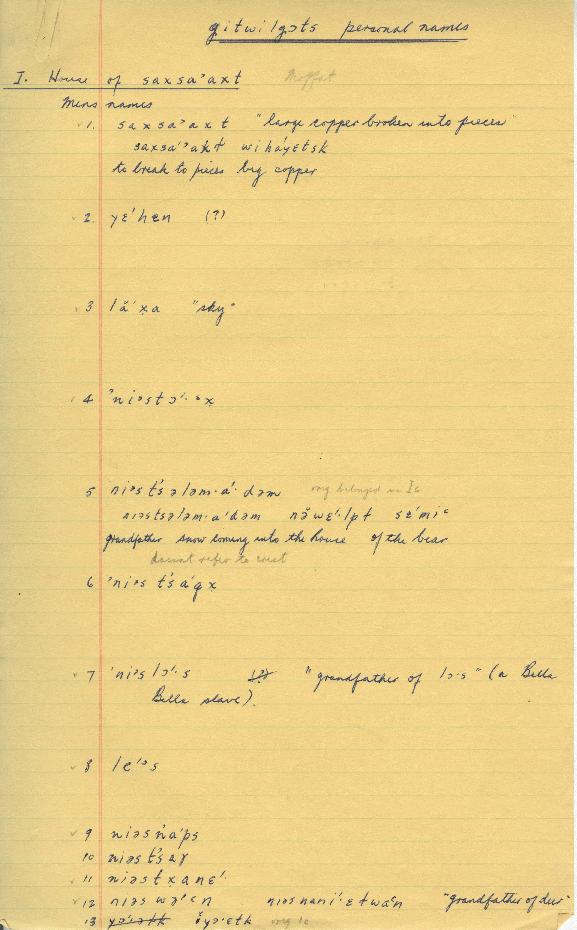 gitwilgɔts personal names
I. House of saxsaʼaxt Moffat
Mens names
1. saxsaʼaxt "large copper broken into pieces"
saxsaʼʼaxt wiháyɛtsk
to break to pieces big copper
2. yɛʹhɛn (?)
3 lăʹx̣a "sky"
4 ʼniəstɔʹ·ᵊx̣
5 niəstʼsələm·aʹ·dəm
niəstsələm·aʹdəm năwɛʹ·lpt sɛʹmiᶜ
grandfather snow coming into the house of the bear
doesnt refer to crest
6 ʼniəs tʼsaʹgx̣
7 ʼniəslɔʹ·s (?) "grandfather of lɔ·s" (a Bella
Bella slave).
8 leʹəs
9 niəsnʼaʹps
10 niəstʼsaɣ
11 niəstx̣aneʹ·
12 niəs wəʹᶜn niəsnaniʹ·ɛtwaʹn "grandfather of deer"
13